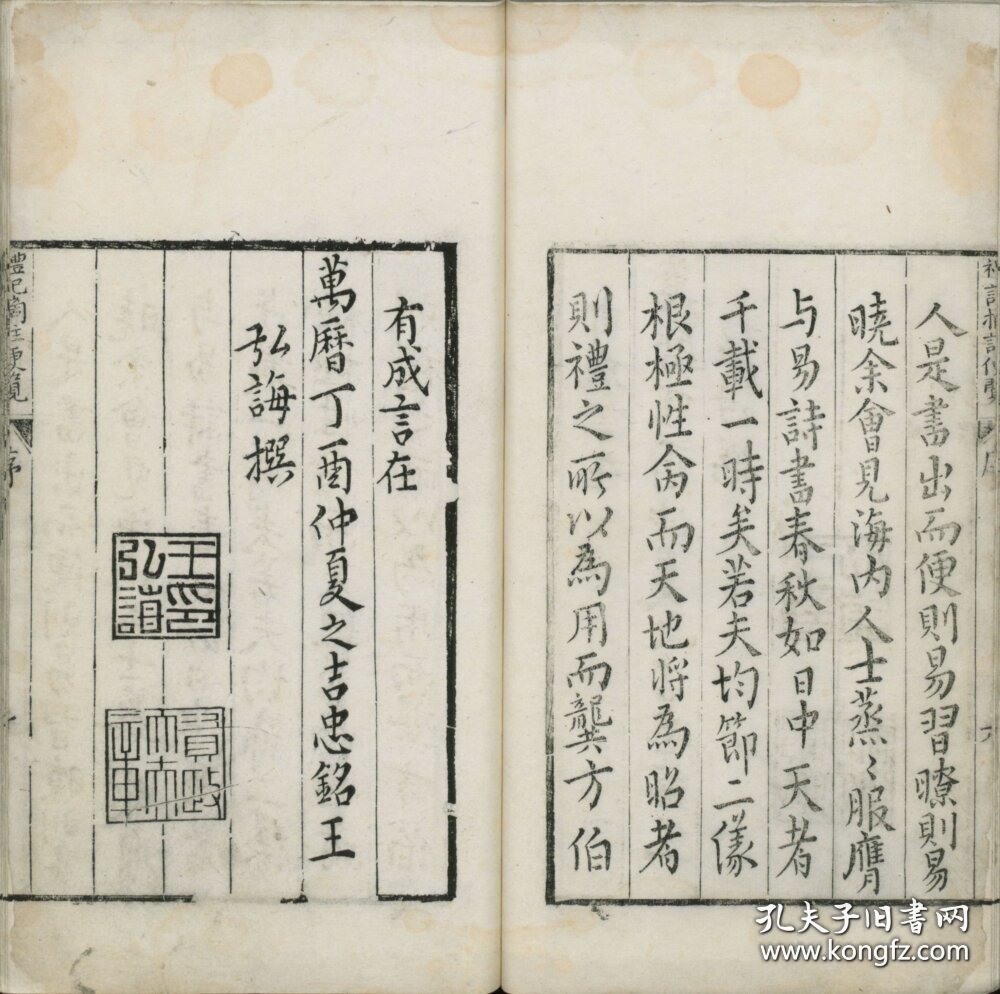 人是書出而便則易習瞭則易
曉余會見海內人士蒸〻服膺
与易詩書春秋如日中天者
千載一時矣若夫均節二儀
根極性命而天地將為昭者
則禮之所以為用而龔方伯
有成言在
萬曆丁酉仲夏之吉忠銘王
弘誨撰
王印弘誨
禮記
便覽
序
孔夫子旧书网
www.kongfz.com